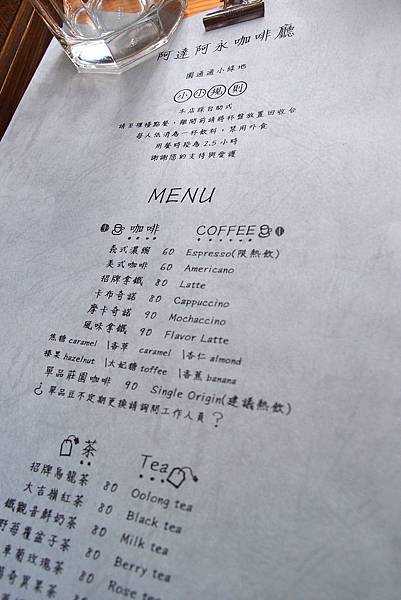 阿達阿永咖啡廳
園通道小綠地
小小規則
本店採自助式
請至櫃檯點餐，離開前請將杯盤放置回收台
每人低消為一杯飲料，禁用外食
用餐時段為 2.5 小時
謝謝您的支持與愛護
MENU
咖啡 COFFEE
義式濃縮 60 Espresso(限熱飲)
美式咖啡 60 Americano
招牌拿鐵 80 Latte
卡布奇諾 80 Cappuccino
摩卡奇諾 90 Mochaccino
風味拿鐵 90 Flavor Latte
焦糖caramel \香草 caramel \杏仁almond
榛果hazelnut \太妃糖toffee \香蕉banana
單品莊園咖啡 90 Single Origin(建議熱飲)
¿單品豆不定期更換請詢問工作人員?
茶 Tea
招牌烏龍茶 80 Oolong tea
大吉嶺紅茶 80 Black tea
鐵觀音鮮奶茶 80 Milk tea
野莓覆盆子茶 80 Berry tea
車蘭玫瑰茶 80 Rose tea
奇異果茶 80